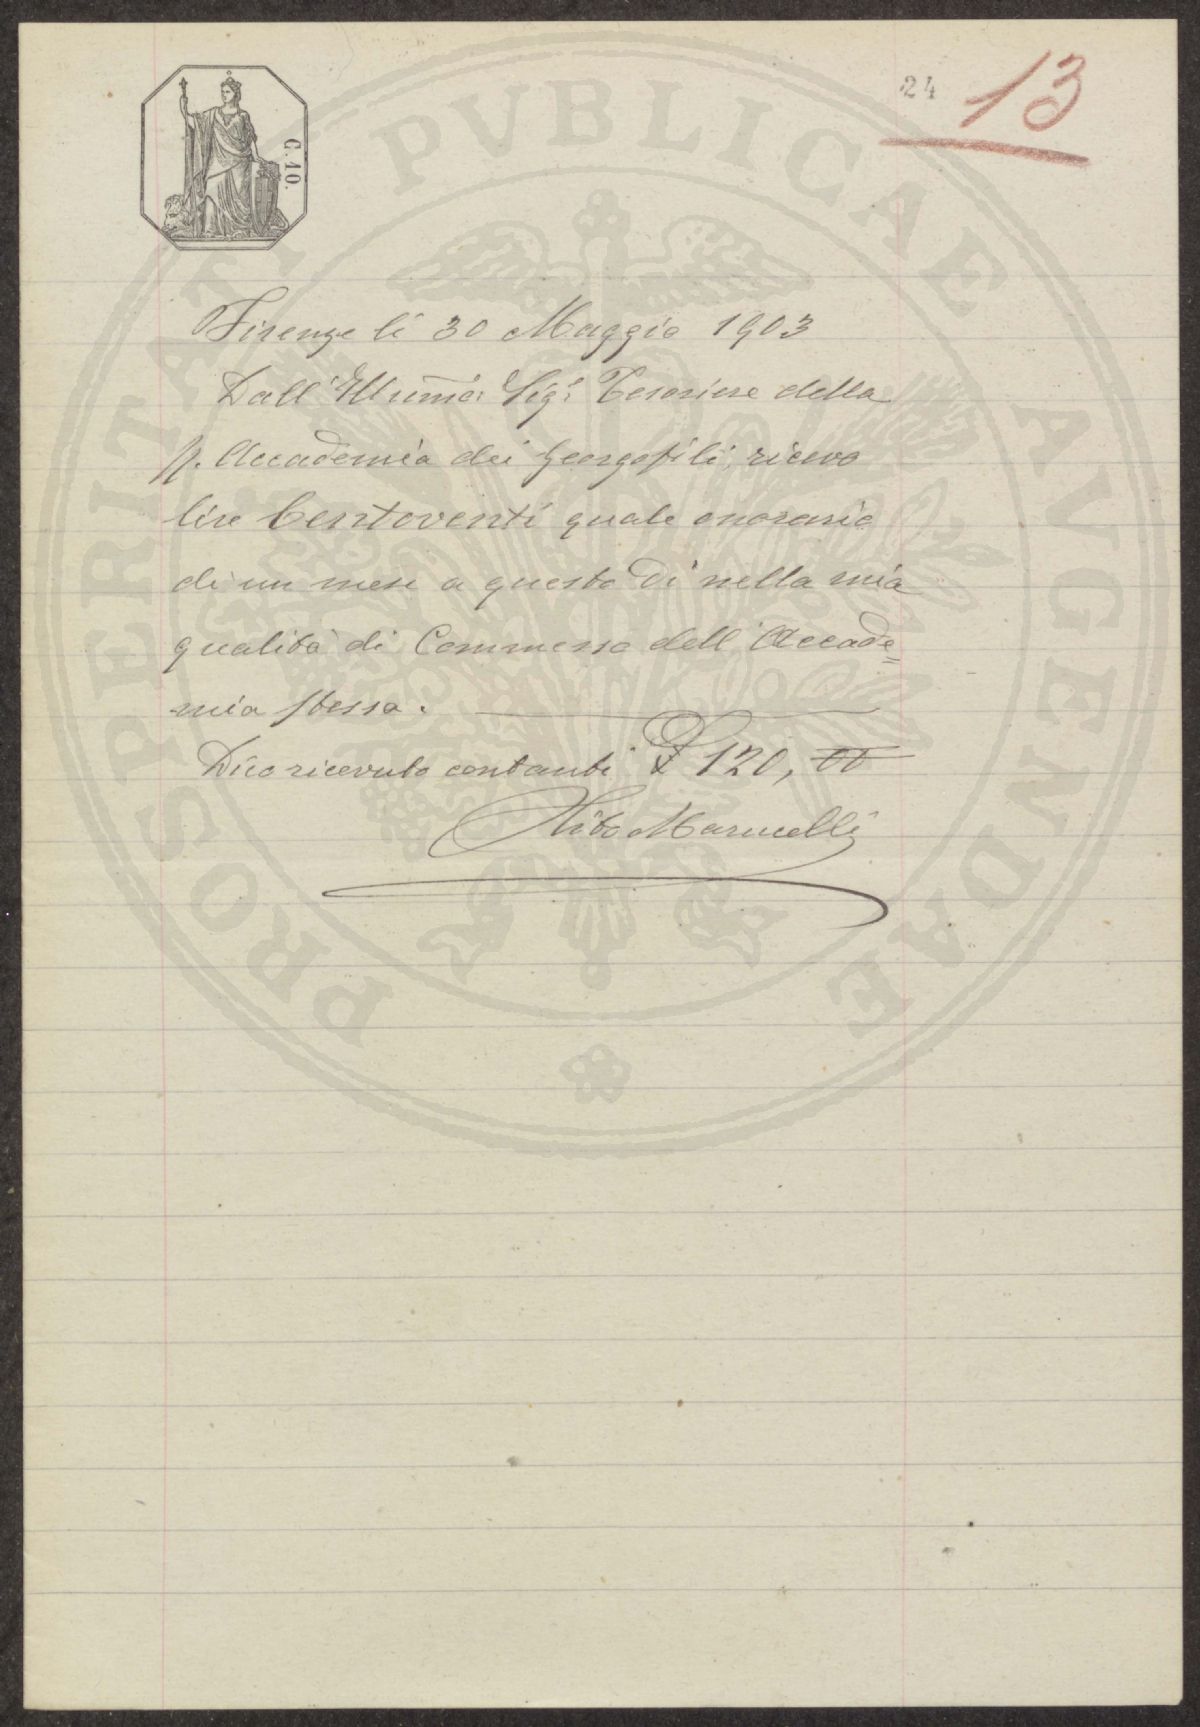 24 13
C. 10.
PROSPERITATI PVBLICAE AVGENDAE
Firenze li 30 Maggio 1903
Dall' Illumo: Sigr: Tesoriere della
R. Accademia dei Georgofili, ricevo
lire Centoventi quale onorario
di un mese a questo dì nella mia
qualità di Commesso dell' Accade=
mia stessa.
Dico ricevuto contanti £ 120, 00
Marucelli